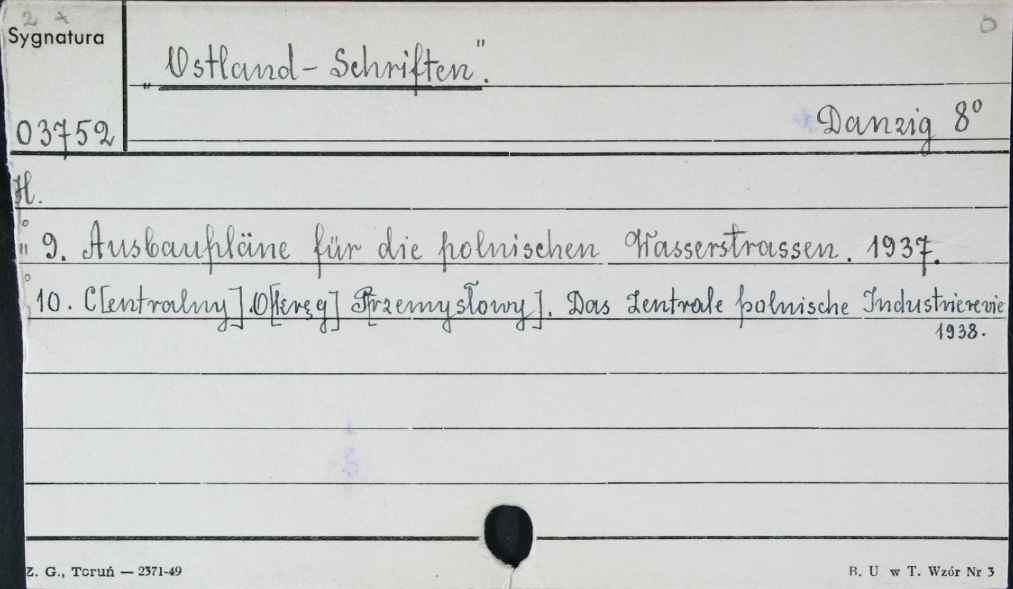 2 x
Sygnatura
0
„Ostland - Schriften".
03752
Danzig 8°
H.
" 9. Ausbaupläne für die polnischen Wasserstrassen. 1937.
10. C[entralny] O[kręg] P[rzemysłowy]. Das Zentrale polnische Industrierevie
1938.
Z. G., Toruń — 2371-49
B. U w T. Wzór Nr 3